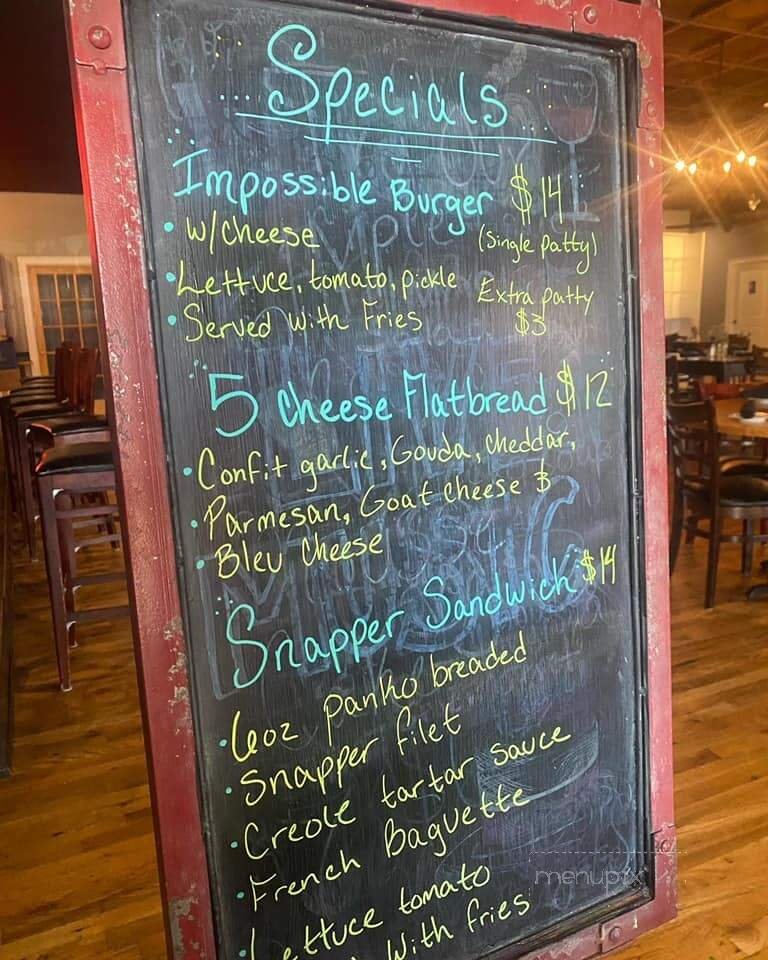 Specials
Impossible Burger $14
• w/cheese (single patty)
• Lettuce, tomato, pickle Extra patty
• Served with Fries $3
5 Cheese Flatbread $12
• Confit garlic, Gouda, cheddar,
• Parmesan, Goat cheese &
• Bleu Cheese
Snapper Sandwich $14
• 6oz panko breaded
• Snapper filet
• Creole tartar sauce
• French Baguette
• Lettuce tomato
With fries
menupix